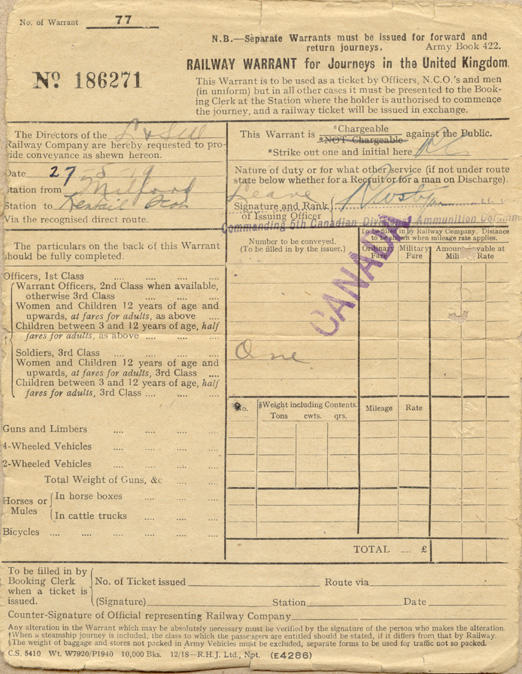 No. of Warrant 77
N.B.—Separate Warrants must be issued for forward and
return journeys. Army Book 422.
No 186271
RAILWAY WARRANT for Journeys in the United Kingdom.
This Warrant is to be used as a ticket by Officers, N.C.O.'s and men
(in uniform) but in all other cases it must be presented to the Book-
ing Clerk at the Station where the holder is authorised to commence
the journey, and a railway ticket will be issued in exchange.
The Directors of the
Railway Company are hereby requested to pro-
vide conveyance as shewn hereon.
Date 27
Station from Milford
Station to
Via the recognised direct route.
This Warrant is *Chargeable
*NOT Chargeable against the Public.
*Strike out one and initial here
Nature of duty or for what other service (if not under route
state below whether for a Recruit or for a man on Discharge).
Leave
Signature and Rank
of Issuing Officer
Commanding 5th Canadian Div Ammunition Column
CANADA
The particulars on the back of this Warrant
should be fully completed.
Number to be conveyed.
(To be filled in by the issuer.)
in by Railway Company. Distance
when mileage rate applies.
Ordinary Fare
Military Fare
Amount payable at
Mil Rate
Officers, 1st Class
Warrant Officers, 2nd Class when available,
otherwise 3rd Class
Women and Children 12 years of age and
upwards, at fares for adults, as above
Children between 3 and 12 years of age, half
fares for adults, as above
Soldiers, 3rd Class One
Women and Children 12 years of age and
upwards, at fares for adults, 3rd Class
Children between 3 and 12 years of age, half
fares for adults, 3rd Class
No. §Weight including Contents. Mileage Rate
Tons cwts. qrs.
Guns and Limbers
4-Wheeled Vehicles
2-Wheeled Vehicles
Total Weight of Guns, &c
Horses or Mules
In horse boxes
In cattle trucks
Bicycles
TOTAL .... £
To be filled in by
Booking Clerk
when a ticket is
issued.
No. of Ticket issued Route via
(Signature) Station Date
Counter-Signature of Official representing Railway Company
Any alteration in the Warrant which may be absolutely necessary must be verified by the signature of the person who makes the alteration.
†When a steamship journey is included, the class to which the passengers are entitled should be stated, if it differs from that by Railway.
§The weight of baggage and stores not packed in Army Vehicles must be excluded, separate forms to be used for traffic not so packed.
C.S. 5410 Wt. W7920/P1940 10,000 Bks. 12/18—R.H.J. Ltd., Npt. (E4286)